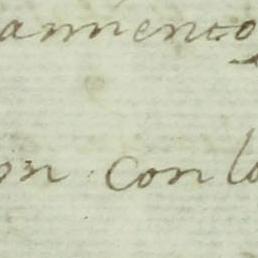 amiento
on con lo